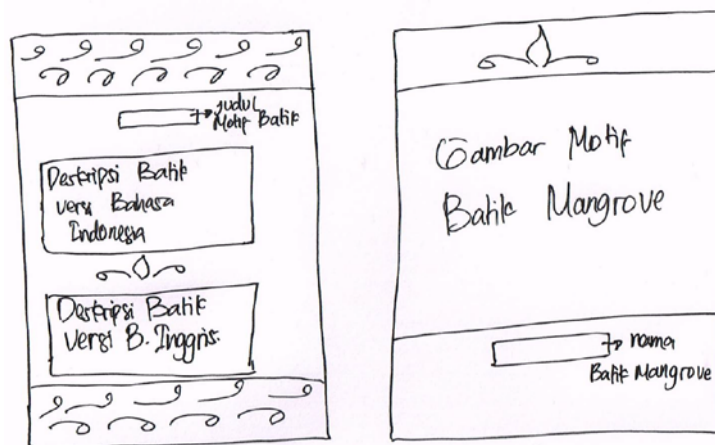 Judul
Motif Batik
Deskripsi Batik
versi Bahasa
Indonesia
Deskripsi Batik
Versi B. Inggris.
Gambar Motif
Batik Mangrove
nama
Batik Mangrove